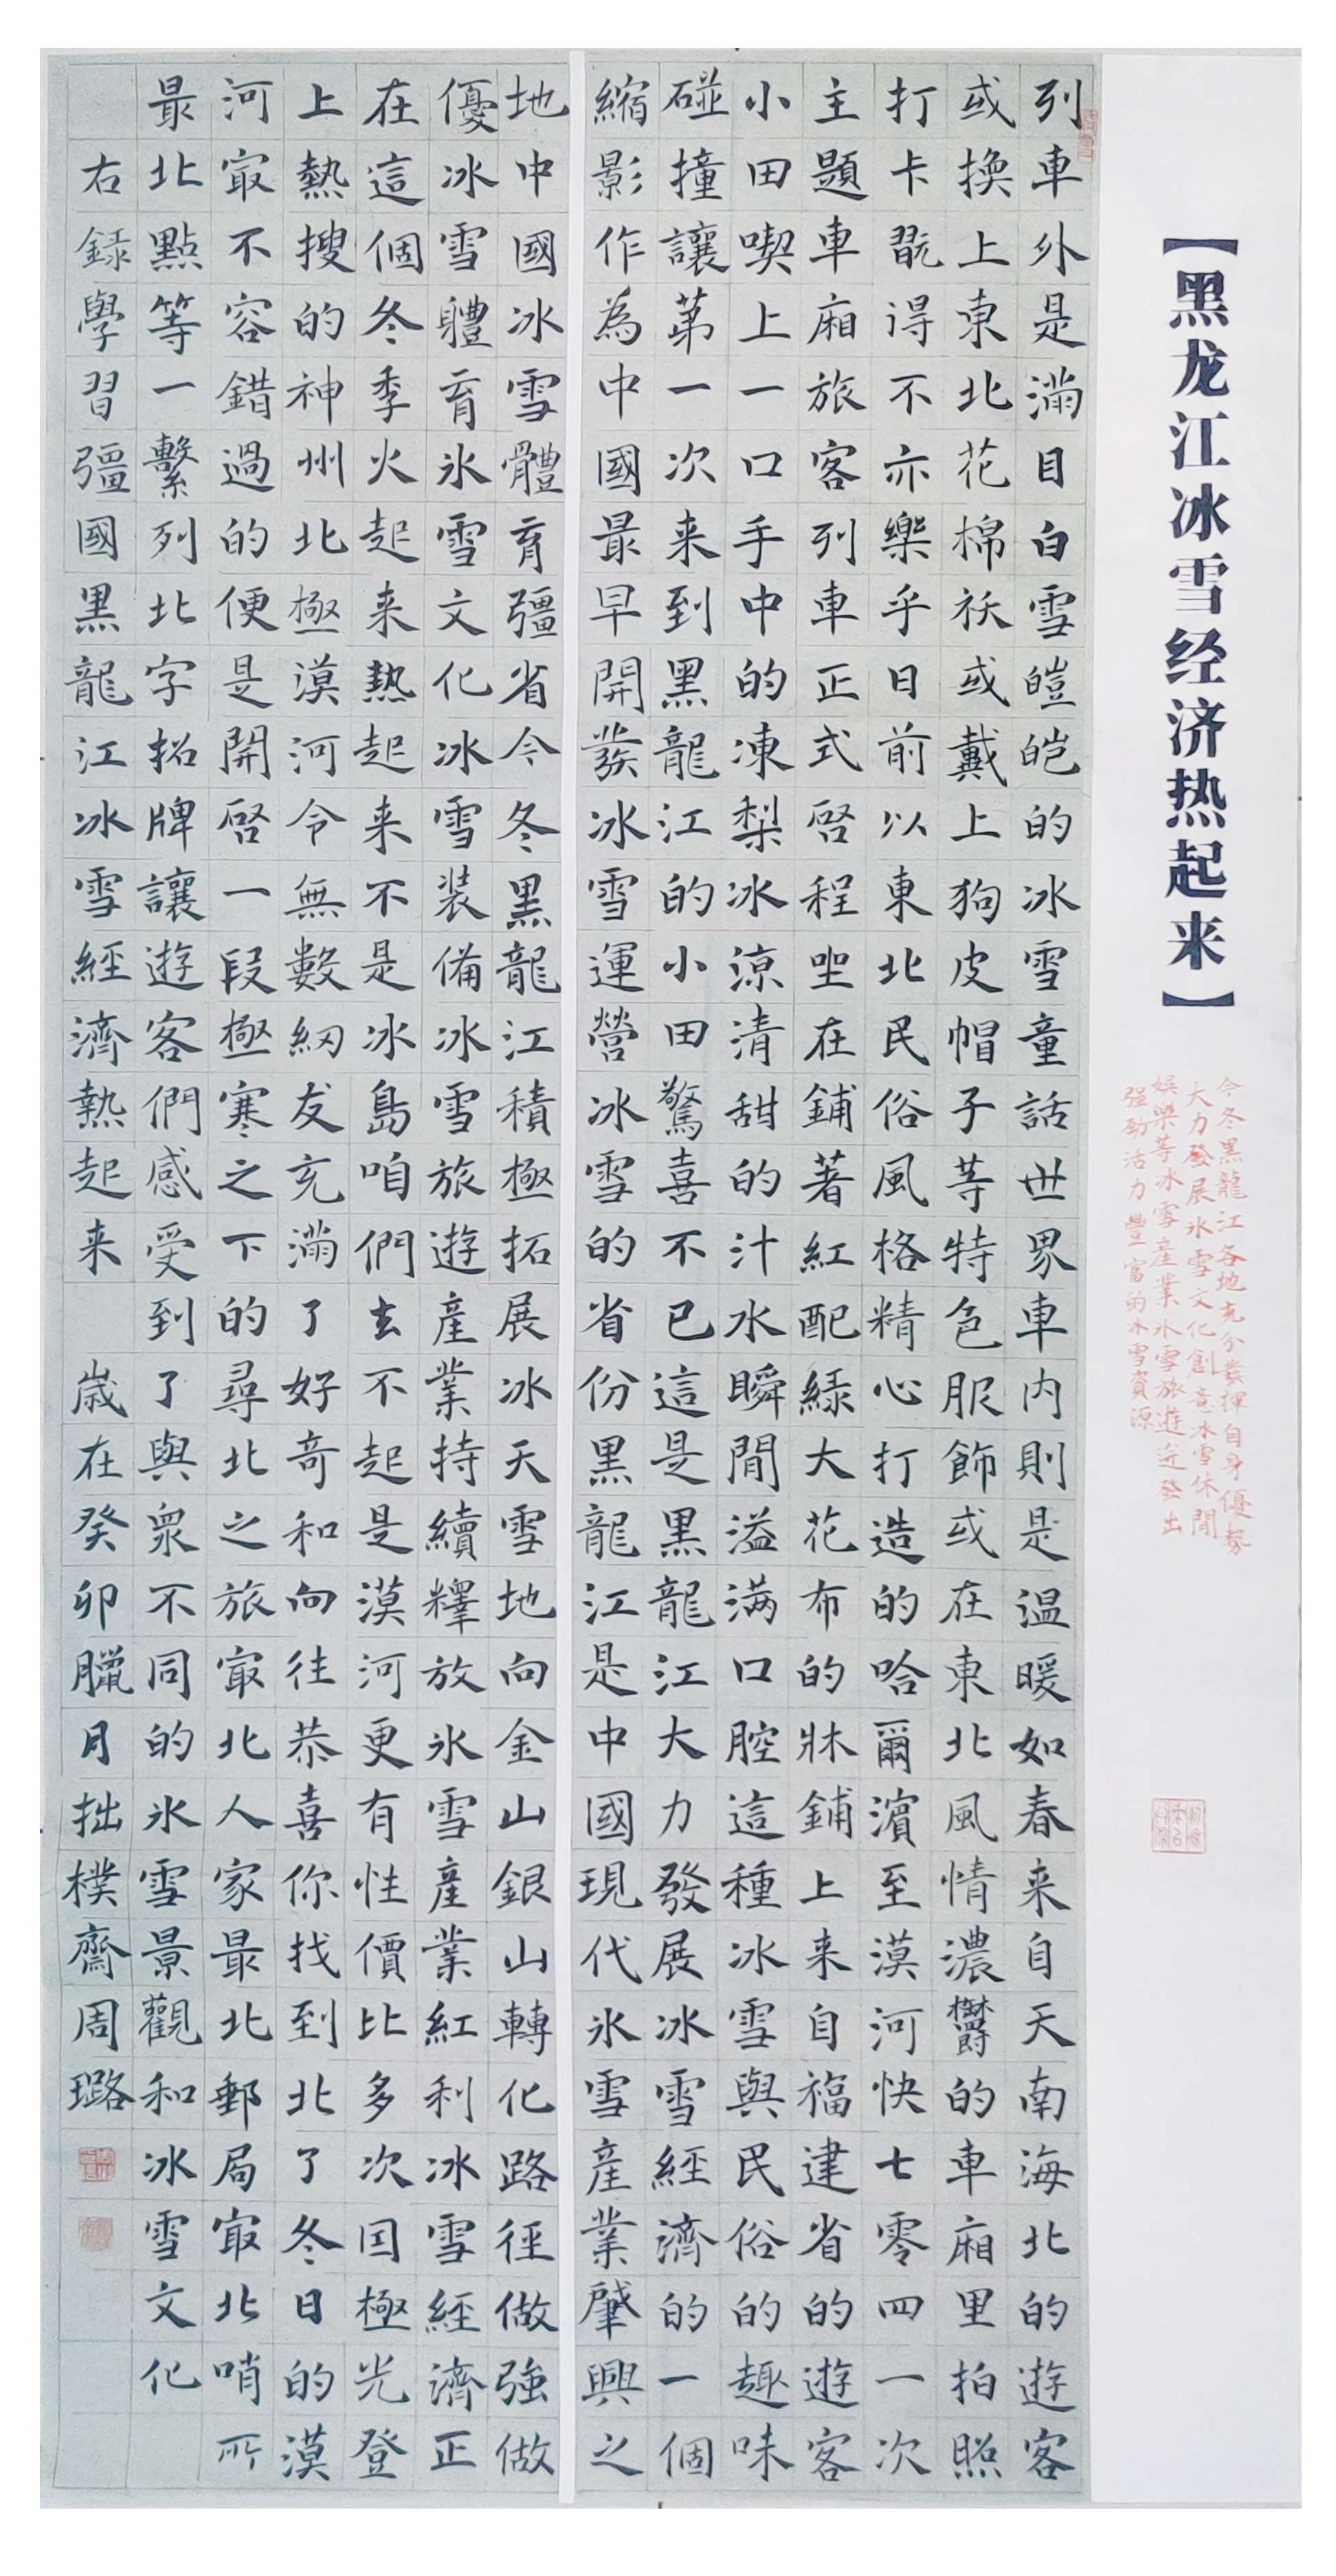 【黑龙江冰雪经济热起来】
今冬黑龍江各地充分發揮自身優勢
大力發展冰雪文化創意冰雪休閒
娛樂等冰雪産業冰雪旅遊迸發出
强勁活力豐富的冰雪資源
列車外是滿目白雪皚皚的冰雪童話世界車内則是温暖如春来自天南海北的遊客
或換上東北花棉袄或戴上狗皮帽子等特色服飾或在東北風情濃欝的車廂里拍照
打卡翫得不亦樂乎日前以東北民俗風格精心打造的哈爾濱至漠河快七零四一次
主題車廂旅客列車正式啓程坐在鋪著紅配緑大花布的牀鋪上来自福建省的遊客
小田喫上一口手中的凍梨冰涼清甜的汁水瞬間溢满口腔這種冰雪與民俗的趣味
碰撞讓第一次来到黑龍江的小田驚喜不已這是黑龍江大力發展冰雪經濟的一個
縮影作為中國最早開發冰雪運營冰雪的省份黑龍江是中國現代氷雪産業肇興之
地中國冰雪體育彊省今冬黑龍江積極拓展冰天雪地向金山銀山轉化路徑做強做
優冰雪體育氷雪文化冰雪装備冰雪旅遊産業持續釋放氷雪産業紅利冰雪經濟正
在這個冬季火起来熱起来不是冰島咱們去不起是漠河更有性價比多次因極光登
上熱搜的神州北極漠河令無數網友充滿了好奇和向往恭喜你找到北了冬日的漠
河冣不容錯過的便是開啓一段極寒之下的尋北之旅冣北人家最北郵局冣北哨所
最北點等一繫列北字招牌讓遊客們感受到了與衆不同的氷雪景觀和冰雪文化
右録學習彊國黑龍江冰雪經濟熱起来 歲在癸卯臘月拙樸齋周璐